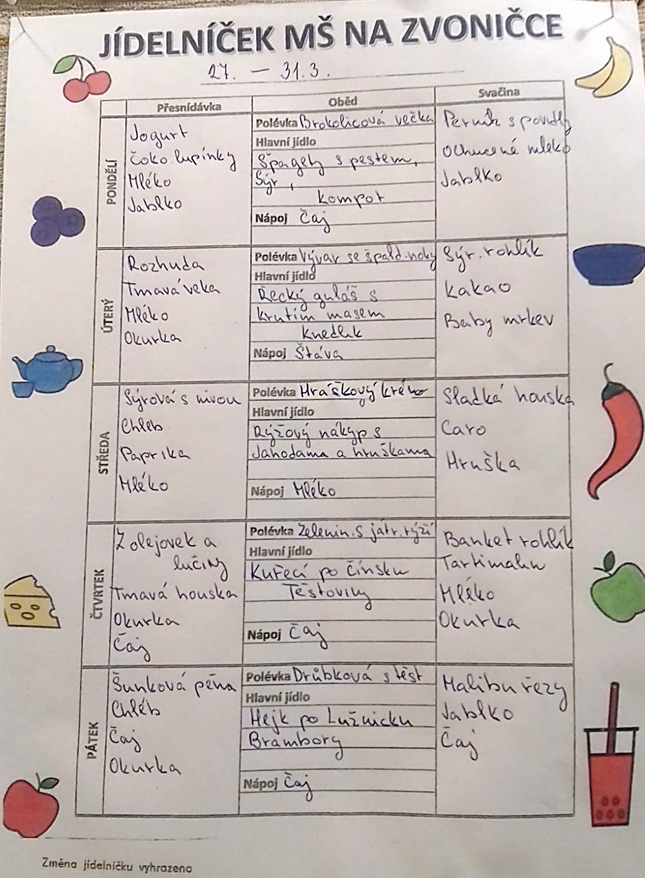 JÍDELNÍČEK MŠ NA ZVONIČCE
27. – 31.3.
Přesnídávka
Oběd
Svačina
PONDĚLÍ
Jogurt
Čoko lupínky
Mléko
Jablko
Polévka Brokolicová večka
Hlavní jídlo
Špagety s pestem,
Sýr,
kompot
Nápoj Čaj
Perník s povidly
Ochucené mléko
Jablko
ÚTERÝ
Rozhuda
Tmavá veka
Mléko
Okurka
Polévka Vývar se špald. noky
Hlavní jídlo
Řecký guláš s
krutím masem
knedlík
Nápoj Šťáva
Sýr. rohlík
kakao
Baby mrkev
STŘEDA
Sýrová s nivou
Chleb
Paprika
Mléko
Polévka Hráškový krém
Hlavní jídlo
Rýžový nákyp s
Jahodama a hruškama
Nápoj Mléko
Sladká houska
Caro
Hruška
ČTVRTEK
Z olejovek a
lučiny
Tmavá houska
Okurka
Čaj
Polévka Zelenin. s játr. rýží
Hlavní jídlo
Kuřecí po čínsku
Těstoviny
Nápoj Čaj
Banket rohlík
Mléko
Okurka
PÁTEK
Šunková pěna
Chléb
Čaj
Okurka
Polévka Drůbková s těst
Hlavní jídlo
Hejk po Lužnicku
Brambory
Nápoj Čaj
Malibu řezy
Jablko
Čaj
Změna jídelníčku vyhrazena